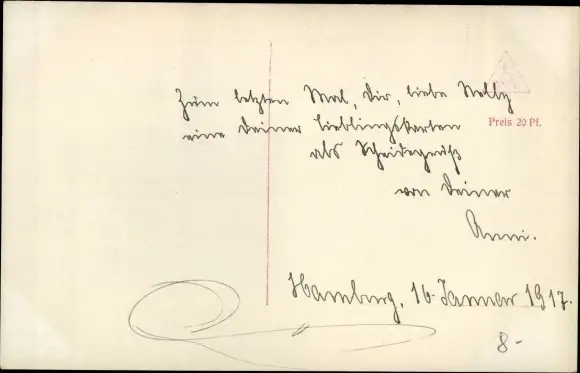 Zum letzten Mal, Dir, liebe Nelly
eine Deiner Lieblingskarten
als Scheidegruß
von Deiner
Anni.
Preis 20 Pf.
Hamburg, 16. Januar 1917.
8-